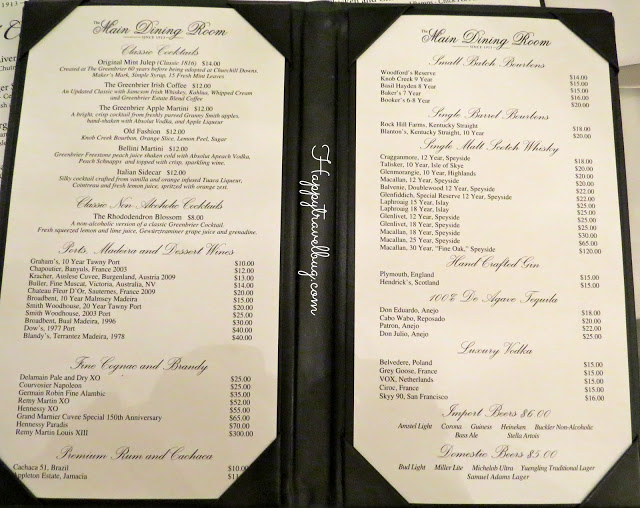 The
Main Dining Room
SINCE 1913
Classic Cocktails
Original Mint Julep (Classic 1816) $14.00
Created at The Greenbrier 60 years before being adopted at Churchill Downs.
Maker's Mark, Simple Syrup, 15 Fresh Mint Leaves
The Greenbrier Irish Coffee $12.00
An Updated Classic with Jameson Irish Whiskey, Kahlua, Whipped Cream
and Greenbrier Estate Blend Coffee
The Greenbrier Apple Martini $12.00
A bright, crisp cocktail from freshly pureed Granny Smith apples,
hand-shaken with Absolut Vodka, and Apple Liqueur
Old Fashion $12.00
Knob Creek Bourbon, Orange Slice, Lemon Peel, Sugar
Bellini Martini $12.00
Greenbrier Freestone peach juice shaken cold with Absolut Apeach Vodka,
Peach Schnapps and topped with crisp, sparkling wine.
Italian Sidecar $12.00
Silky cocktail crafted from vanilla and orange infused Tuaca Liqueur,
Cointreau and fresh lemon juice, spritzed with orange zest.
Classic Non Alcoholic Cocktails
The Rhododendron Blossom $8.00
A non-alcoholic version of a classic Greenbrier Cocktail.
Fresh squeezed lemon and lime juice, Gewürztraminer grape juice and grenadine.
Ports, Madeira and Dessert Wines
Graham's, 10 Year Tawny Port $10.00
Chapoutier, Banyuls, France 2003 $12.00
Kracher, Auslese Cuvee, Burgenland, Austria 2009 $13.00
Buller, Fine Muscat, Victoria, Australia, NV $14.00
Chateau Fleur D'Or, Sauternes, France 2009 $20.00
Broadbent, 10 Year Malmsey Madeira $15.00
Smith Woodhouse, 20 Year Tawny Port $20.00
Smith Woodhouse, 2003 Port $25.00
Broadbent, Bual Madeira, 1996 $30.00
Dow's, 1977 Port $40.00
Blandy's, Terrantez Madeira, 1978 $40.00
Fine Cognac and Brandy
Delamain Pale and Dry XO $25.00
Courvosier Napoleon $25.00
Germain Robin Fine Alambic $35.00
Remy Martin XO $52.00
Hennessy XO $55.00
Grand Marnier Cuvee Special 150th Anniversary $65.00
Hennessy Paradis $70.00
Remy Martin Louis XIII $300.00
Premium Rum and Cachaca
Cachaca 51, Brazil $10.00
Appleton Estate, Jamacia
Happytravelbug.com
The
Main Dining Room
SINCE 1913
Small Batch Bourbons
Woodford's Reserve $14.00
Knob Creek 9 Year $15.00
Basil Hayden 8 Year $15.00
Baker's 7 Year $16.00
Booker's 6-8 Year $20.00
Single Barrel Bourbons
Rock Hill Farms, Kentucky Straight $18.00
Blanton's, Kentucky Straight, 10 Year $20.00
Single Malt Scotch Whisky
Cragganmore, 12 Year, Speyside $18.00
Talisker, 10 Year, Isle of Skye $20.00
Glenmorangie, 10 Year, Highlands $20.00
Macallan, 12 Year, Speyside $20.00
Balvenie, Doublewood 12 Year, Speyside $22.00
Glenfiddich, Special Reserve 12 Year, Speyside $22.00
Laphroaig 15 Year, Islay $25.00
Laphroaig 18 Year, Islay $25.00
Glenlivet, 12 Year, Speyside $25.00
Glenlivet, 18 Year, Speyside $25.00
Macallan, 18 Year, Speyside $30.00
Macallan, 25 Year, Speyside $65.00
Macallan, 30 Year, "Fine Oak," Speyside $120.00
Hand Crafted Gin
Plymouth, England $15.00
Hendrick's, Scotland $15.00
100% De Agave Tequila
Don Eduardo, Anejo $18.00
Cabo Wabo, Reposado $20.00
Patron, Anejo $22.00
Don Julio, Anejo $25.00
Luxury Vodka
Belvedere, Poland $15.00
Grey Goose, France $15.00
VOX, Netherlands $15.00
Ciroc, France $15.00
Skyy 90, San Francisco $16.00
Import Beers $6.00
Amstel Light Corona Guiness Heineken Buckler Non-Alcoholic
Bass Ale Stella Artois
Domestic Beers $5.00
Bud Light Miller Lite Michelob Ultra Yuengling Traditional Lager
Samuel Adams Lager